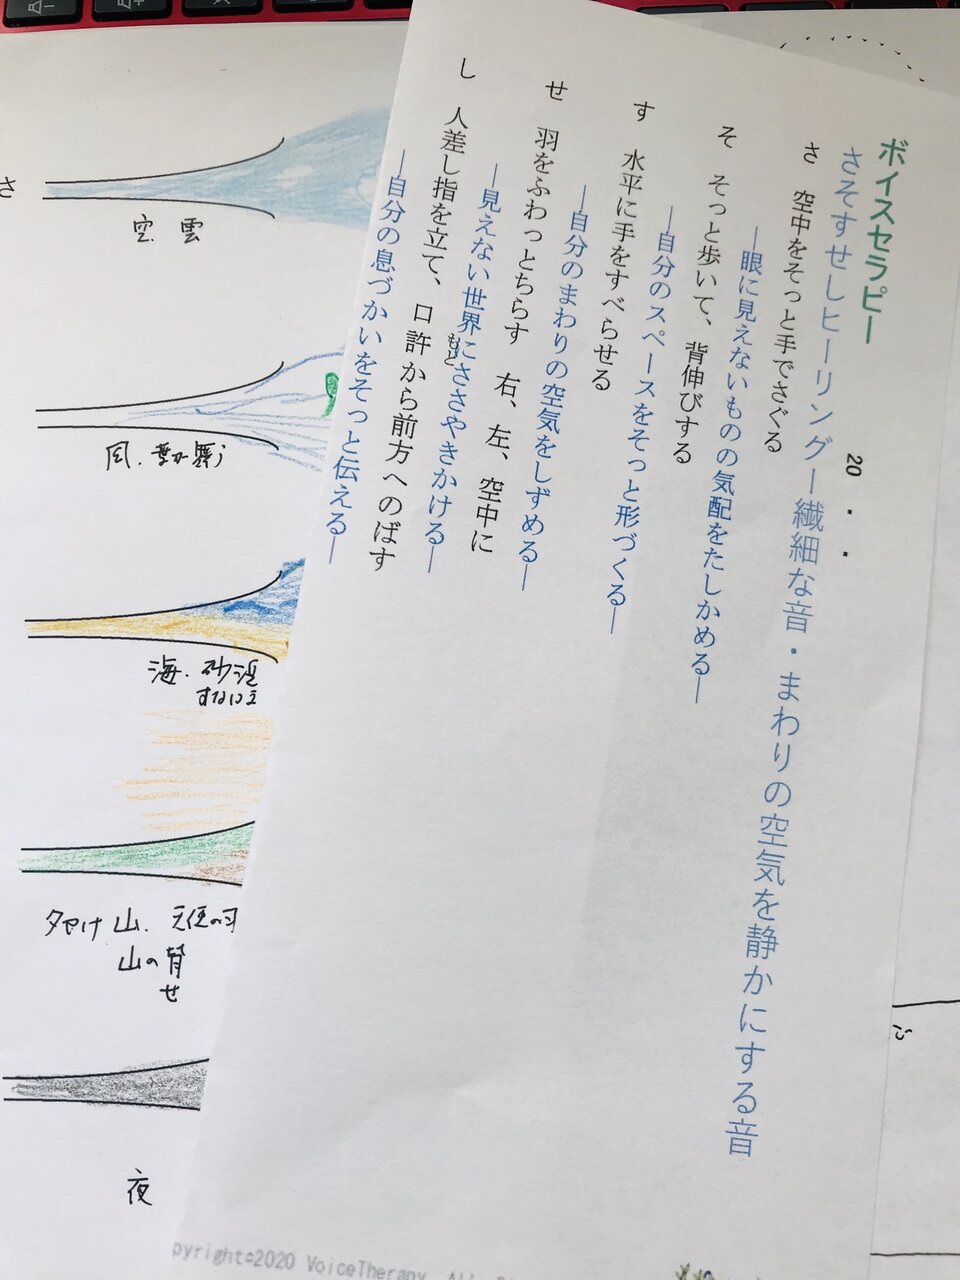 ボイスセラピー
さそすせしヒーリングー繊細な音・まわりの空気を静かにする音
20・・
さ 空中をそっと手でさぐる
―眼に見えないものの気配をたしかめる―
そ そっと歩いて、背伸びする
―自分のスペースをそっと形づくる―
す 水平に手をすべらせる
―自分のまわりの空気をしずめる―
せ 羽をふわっとちらす 右、左、空中に
―見えない世界にささやきかける―
し 人差し指を立て、口許から前方へのばす
もと
―自分の息づかいをそっと伝える―
さ
空 雲
風.葉が舞う
海.砂浜
すなはま
夕やけ 山. 天使の羽
山の背
せ
夜
pyright©2020 VoiceTherapy